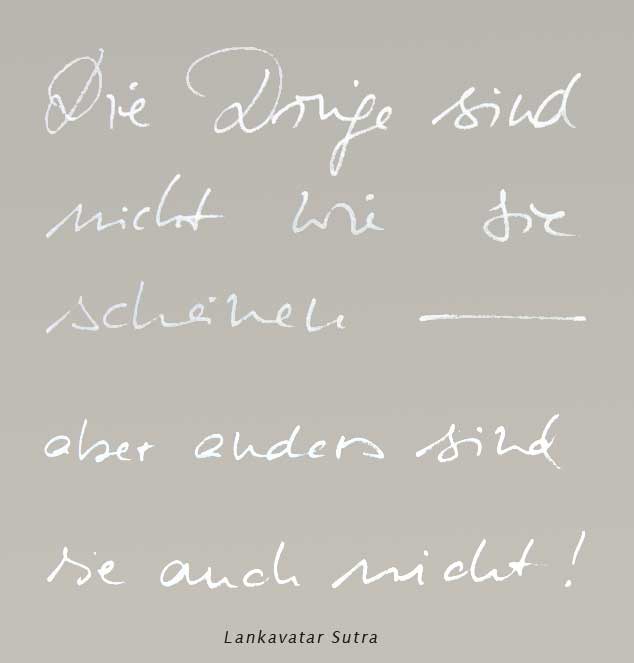 Die Dinge sind
nicht wie sie
scheinen —
aber anders sind
sie auch nicht!
Lankavatar Sutra